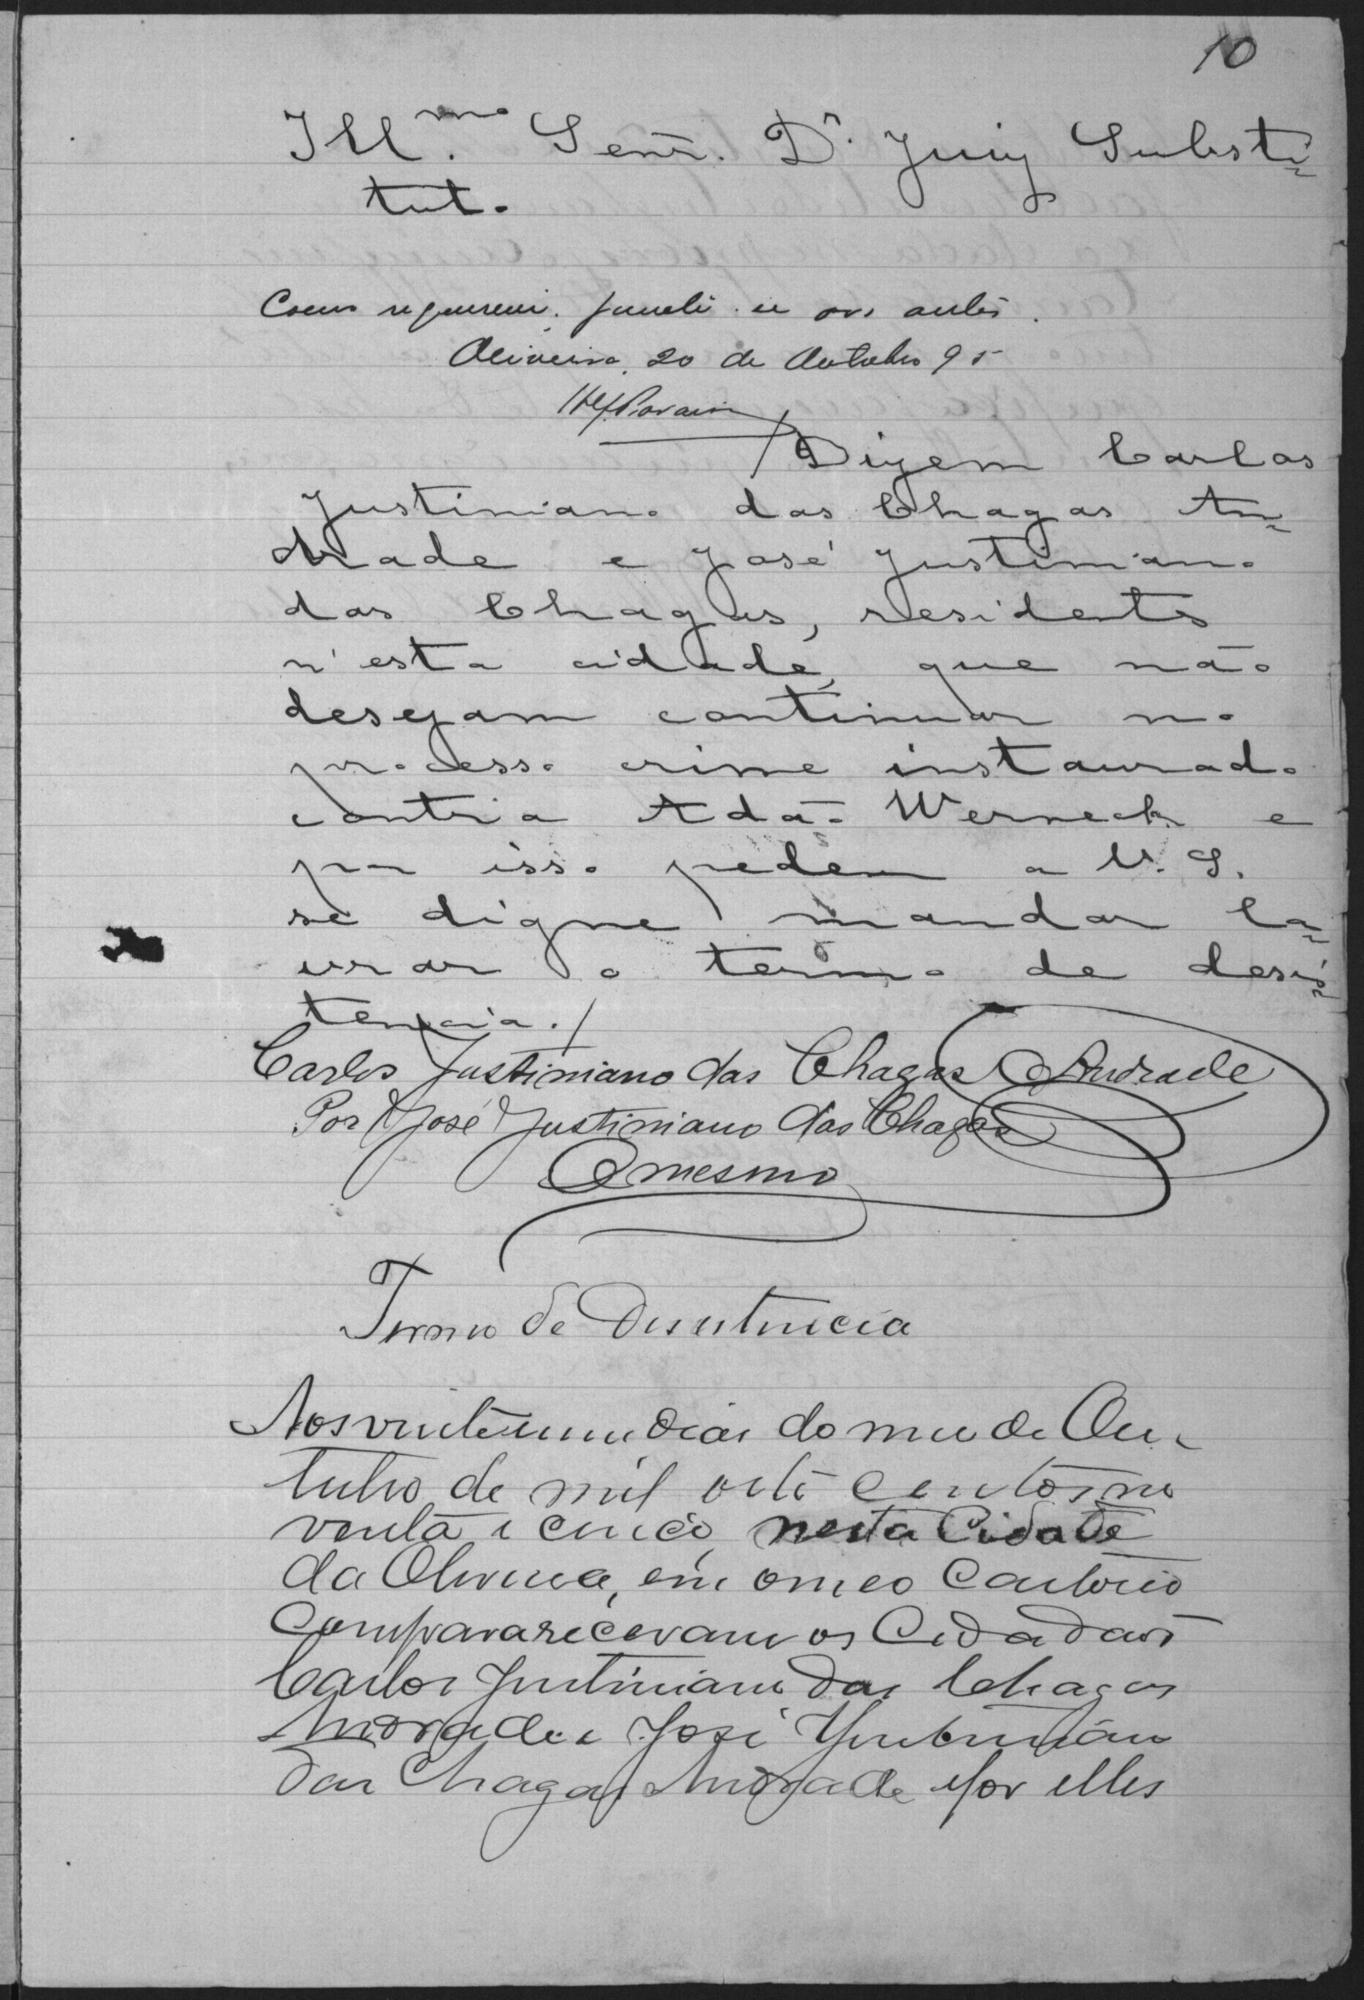 10
Ill.mo Senr. Dr. Juiz Substi-
tuto
Como requerem. Junte se aos autos.
Oliveira, 20 de Outubro 95
Dizem Carlos
Justiniano das Chagas An-
drade e José Justiniano
das Chagas, residents
n'esta cidade, que não
desejam continuar no
processo crime instaurado
contra Adão Werneck e
por isso pedem a V. S.
se digne mandar la-
vrar o termo de desis-
tencia./
Carlos Justiniano das Chagas Andrade
Por José Justiniano das Chagas
O mesmo
Termo de Desistencia
Aos vinte e um dias do mes de Ou-
tubro de mil oito centos no
venta e cinco, nesta Cidade
da Oliveira, em o meo Cartorio
Comparareceram os Cidadãos
Carlos Justiniano das Chagas
Andrade e José Justiniano
das Chagas Andrade e por elles